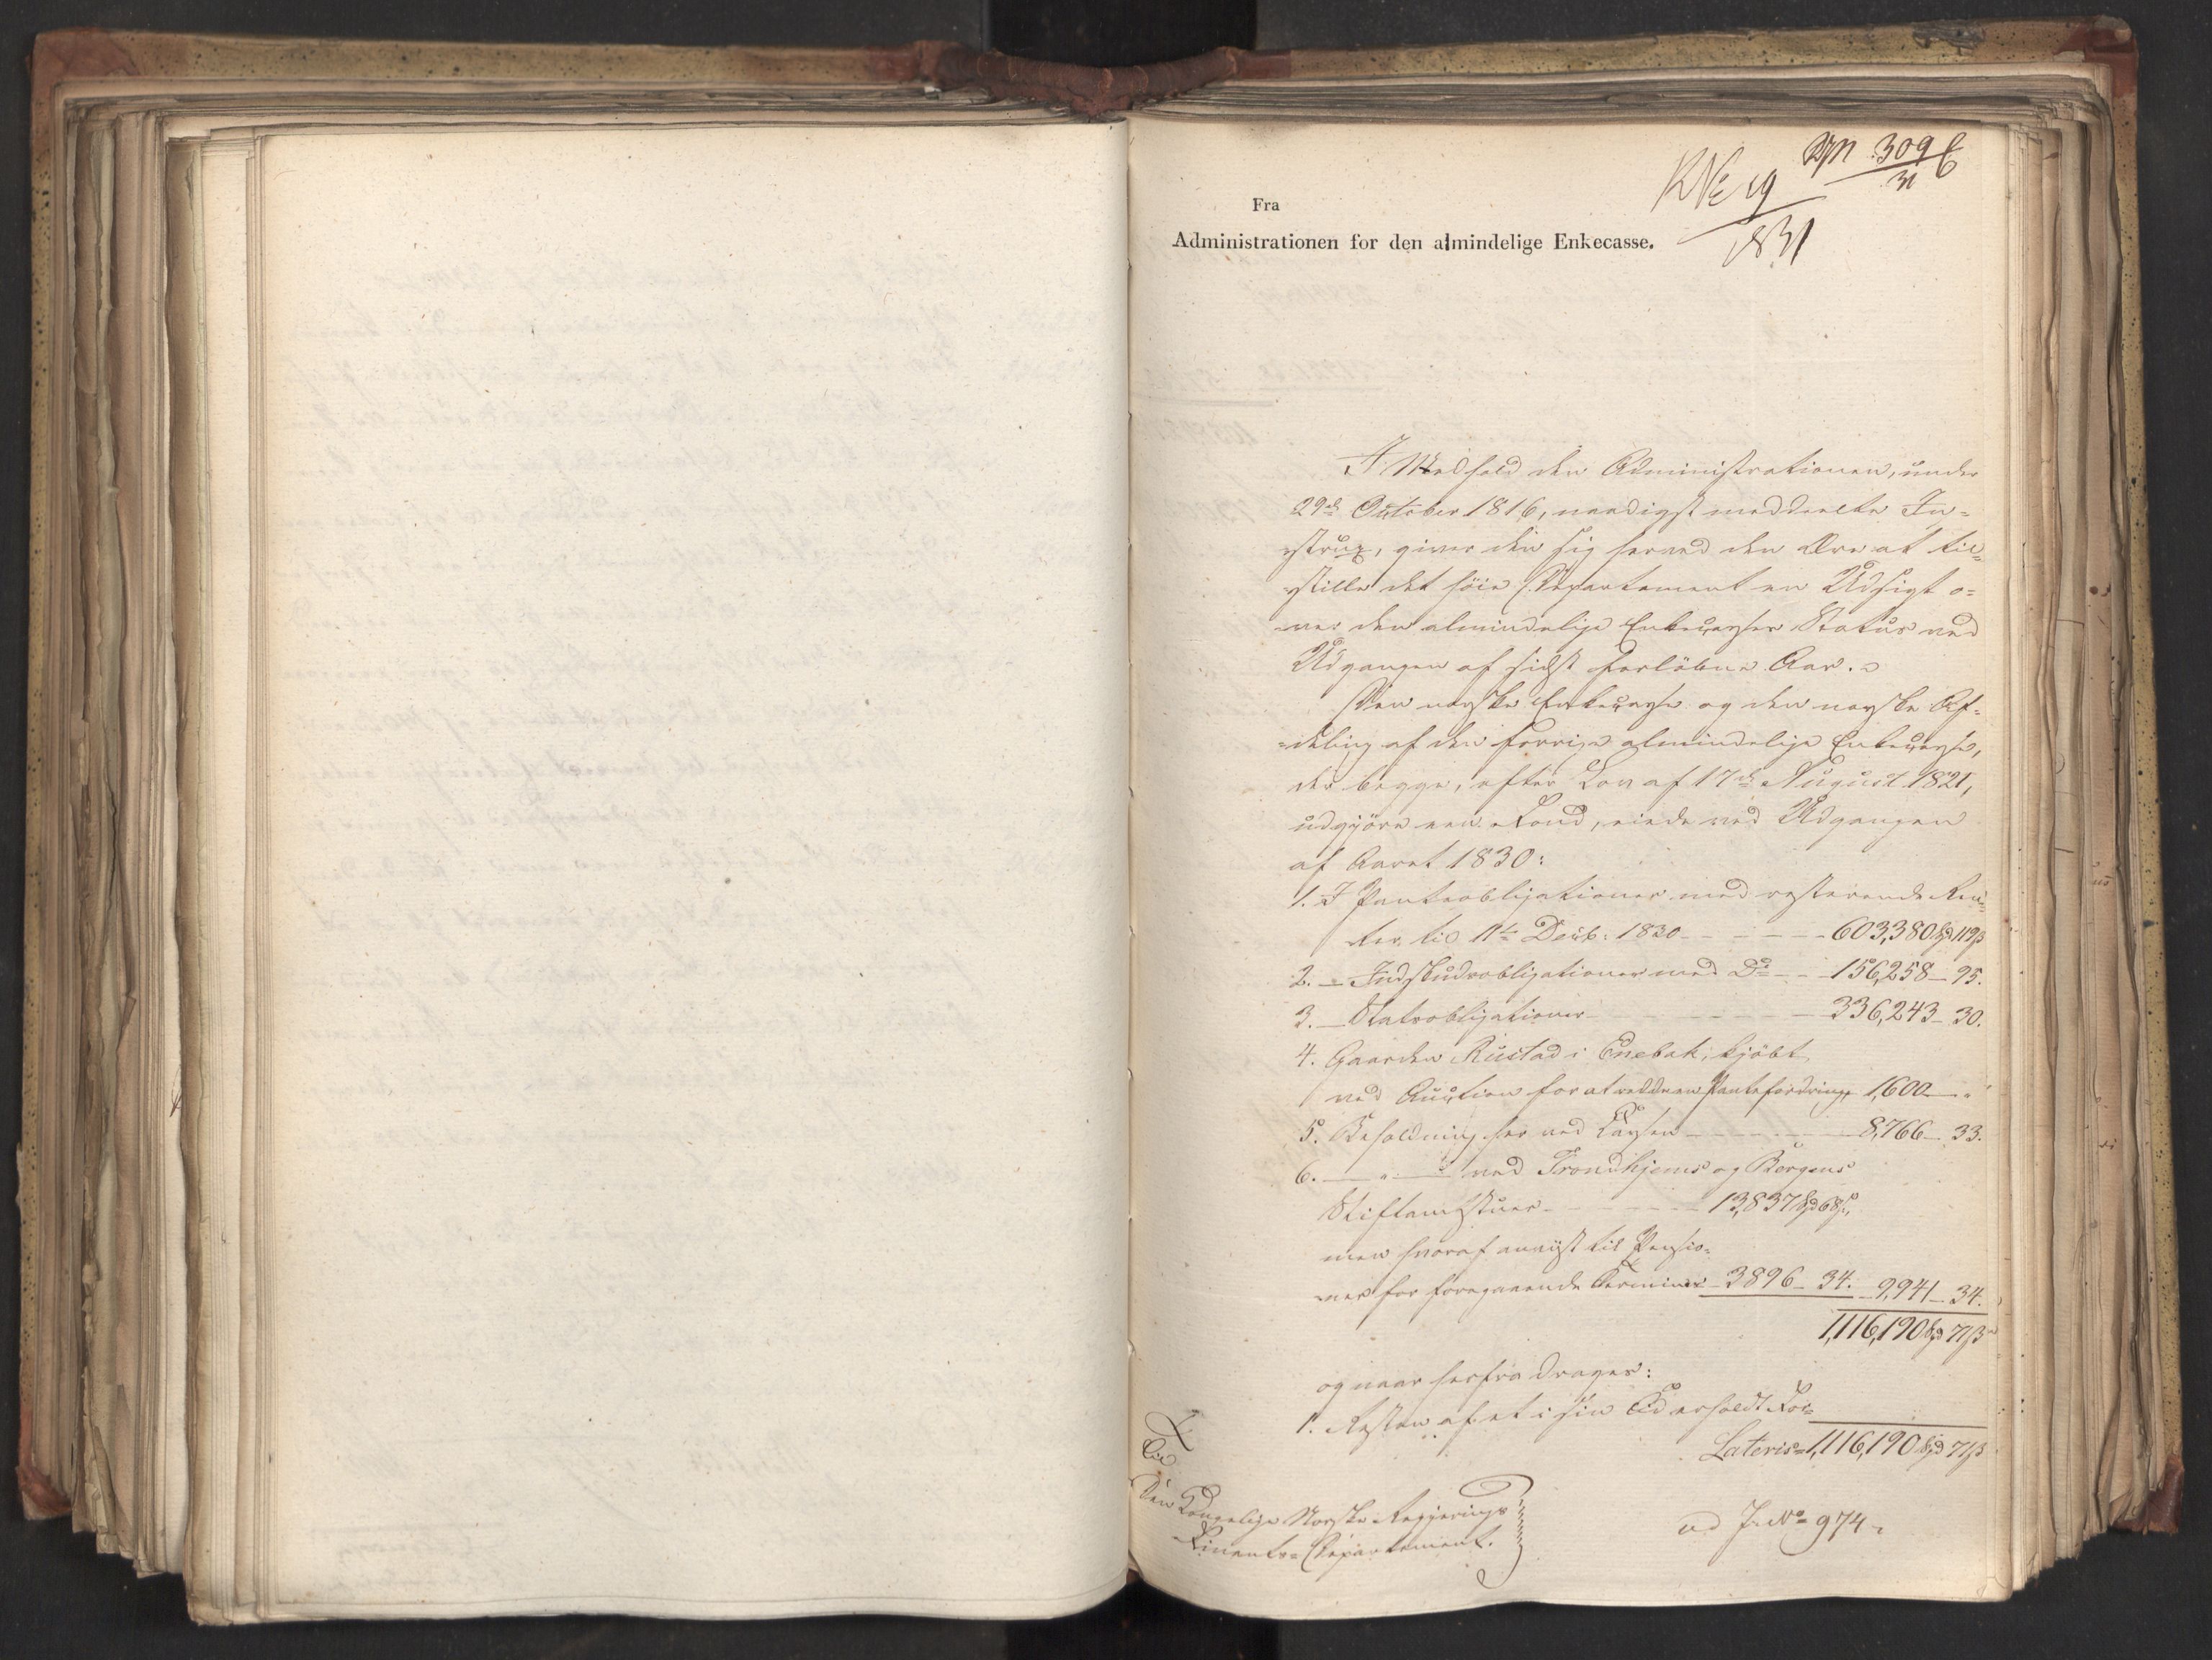 309
31
19
1831
Fra
Administrationen for den almindelige Enkecasse.
I Medhold den Administrationen, under
29de October 1816, naadigst meddeelte In-
strux, giver den sig herved den Ære at til-
stille det høie Departement en Udsigt o-
ver den almindelige Enkecasses Status ved
Udgangen af sidst forløbne Aar.
Den norske Enkecasse og den norske Af-
deling af den forrige almindelige Enkecasse,
der begge, efter Lov af 17de August 1821,
udgjøre een Fond, eiede ved Udgangen
af Aaret 1830:
1. I Panteobligationer med resterende Ren-
ter til 11te Decb: 1830 - - - 603,380 Spd 119 ß
2. — Indskudsobligationer med Do - - 156,258 — 95.
3. — Statsobligationer - - - 336,243 — 30.
4. Gaarden Rustad i Enebak, kjøbt
ved Auction for at redde en Pantefordring, 1,600 — "
5. Beholdning her ved Cassen - - - 8,766 — 33.
6. — " — ved Trondhjems og Bergens
Stiftamtstuer - - - 13,837 Spd 68 ß,
men hvoraf anviist til Pensio-
ner for foregaaende Terminer 3896 — 34. 9,941 — 34.
1,116,190 Spd 71 ß
og naar herfra drages:
1. Resten af et i sin Tid erholdt For-
Lateris 1,116,190 Spd 71 ß
Til
Den Kongelige Norske Regjerings
Finants-Departement.
ad J. No 974